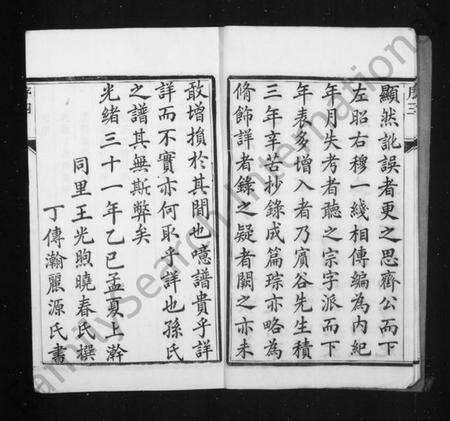 顯然訛誤者更之思齋公而下
左昭右穆一綫相傳編為内紀
年月失考者聽之宗字派而下
年表多增入者乃濱谷先生積
三年辛苦抄錄成篇琮亦略為
脩飾詳者錄之疑者闕之亦未
敢增損於其間也噫譜貴乎詳
詳而不實亦何取乎詳也孫氏
之譜其無斯弊矣
光緒三十一年乙巳孟夏上澣
同里王光煦曉春氏撰
丁傳瀚麗源氏書
序三
序四
FamilySearch International